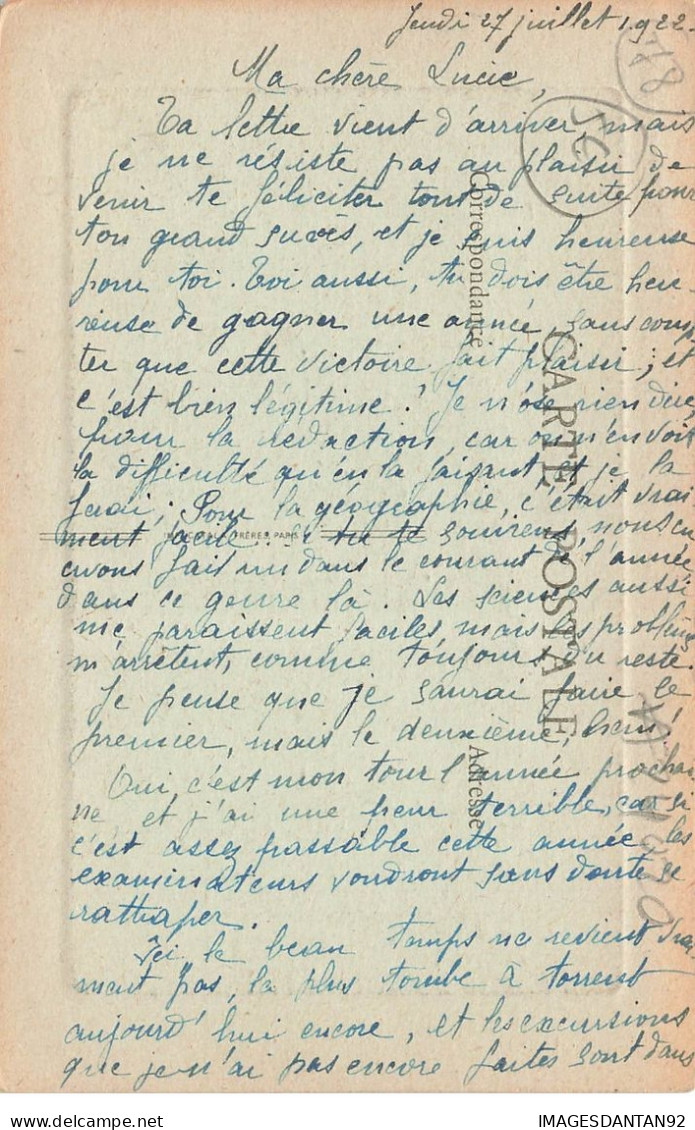 Jeudi 27 juillet 1922.
Ma chère Lucie,
Ta lettre vient d'arriver, mais
je ne résiste pas au plaisir de
venir te féliciter tout de suite pour
ton grand succès, et je suis heureuse
pour toi. Toi aussi, tu dois être heu-
reuse de gagner une année, sans comp-
ter que cette victoire fait plaisir ; et
c'est bien légitime ! Je n'ose rien dire
pour la rédaction, car on n'en voit
la difficulté qu'en la faisant et je la
ferai ; Pour la géographie, c'était vrai
ment facile. Si tu te souviens, nous en
avons fait un dans le courant de l'année
dans ce genre là. Les sciences aussi
me paraissent faciles mais les problèmes
m'arrêtent, comme toujours du reste.
Je pense que je saurai faire le
premier, mais le deuxième, hem !
Oui, c'est mon tour l'année prochai
ne et j'ai une peur terrible, car si
c'est assez passable cette année les
examinateurs voudront sans doute se
rattraper.
Ici, le beau temps ne revient vrai-
ment pas, la pluie tombe à torrent
aujourd'hui encore, et les excursions
que je n'ai pas encore faites sont dans
CARTE POSTALE
Correspondance
Adresse
FRÈRES, PARIS
78
5c
IMAGESDANTAN92